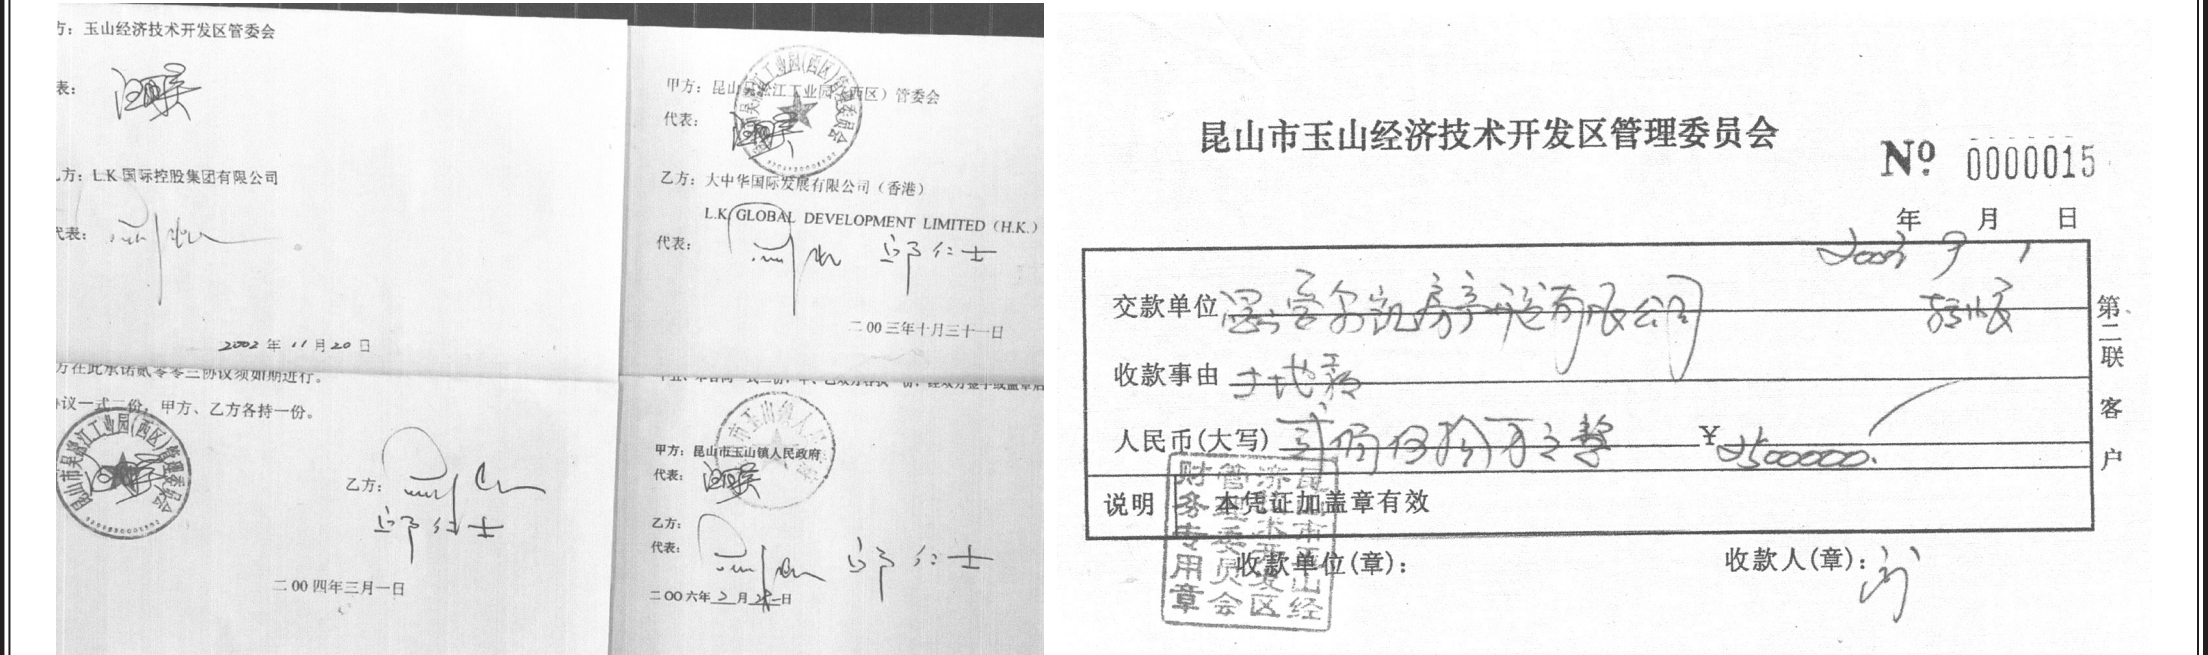 方：玉山经济技术开发区管委会
表：
乙方：L.K 国际控股集团有限公司
代表：
2002 年 11 月 20 日
方在此承诺贰零零三协议须如期进行。
协议一式二份，甲方、乙方各持一份。
昆山市吴淞江工业园(西区)管理委员会
乙方：
邱仁士
二00四年三月一日
甲方：昆山吴淞江工业园（西区）管委会
代表：
昆山市吴淞江工业园(西区)管理委员会
乙方：大中华国际发展有限公司（香港）
L.K. GLOBAL DEVELOPMENT LIMITED（H.K.）
代表：
邱仁士
二00三年十月三十一日
甲方：昆山市玉山镇人民政府
代表：
乙方：
代表：
邱仁士
二00六年 2 月 日
昆山市玉山经济技术开发区管理委员会
No 0000015
年 月 日
2003 9 1
交款单位 房产 有限公司
收款事由 土地款
人民币(大写) 贰佰伍拾万元整 ¥ 2500000.
说明 本凭证加盖章有效
收款单位(章)： 收款人(章)：
昆山市玉山经济技术开发区管理委员会财务专用章
第二联 客户